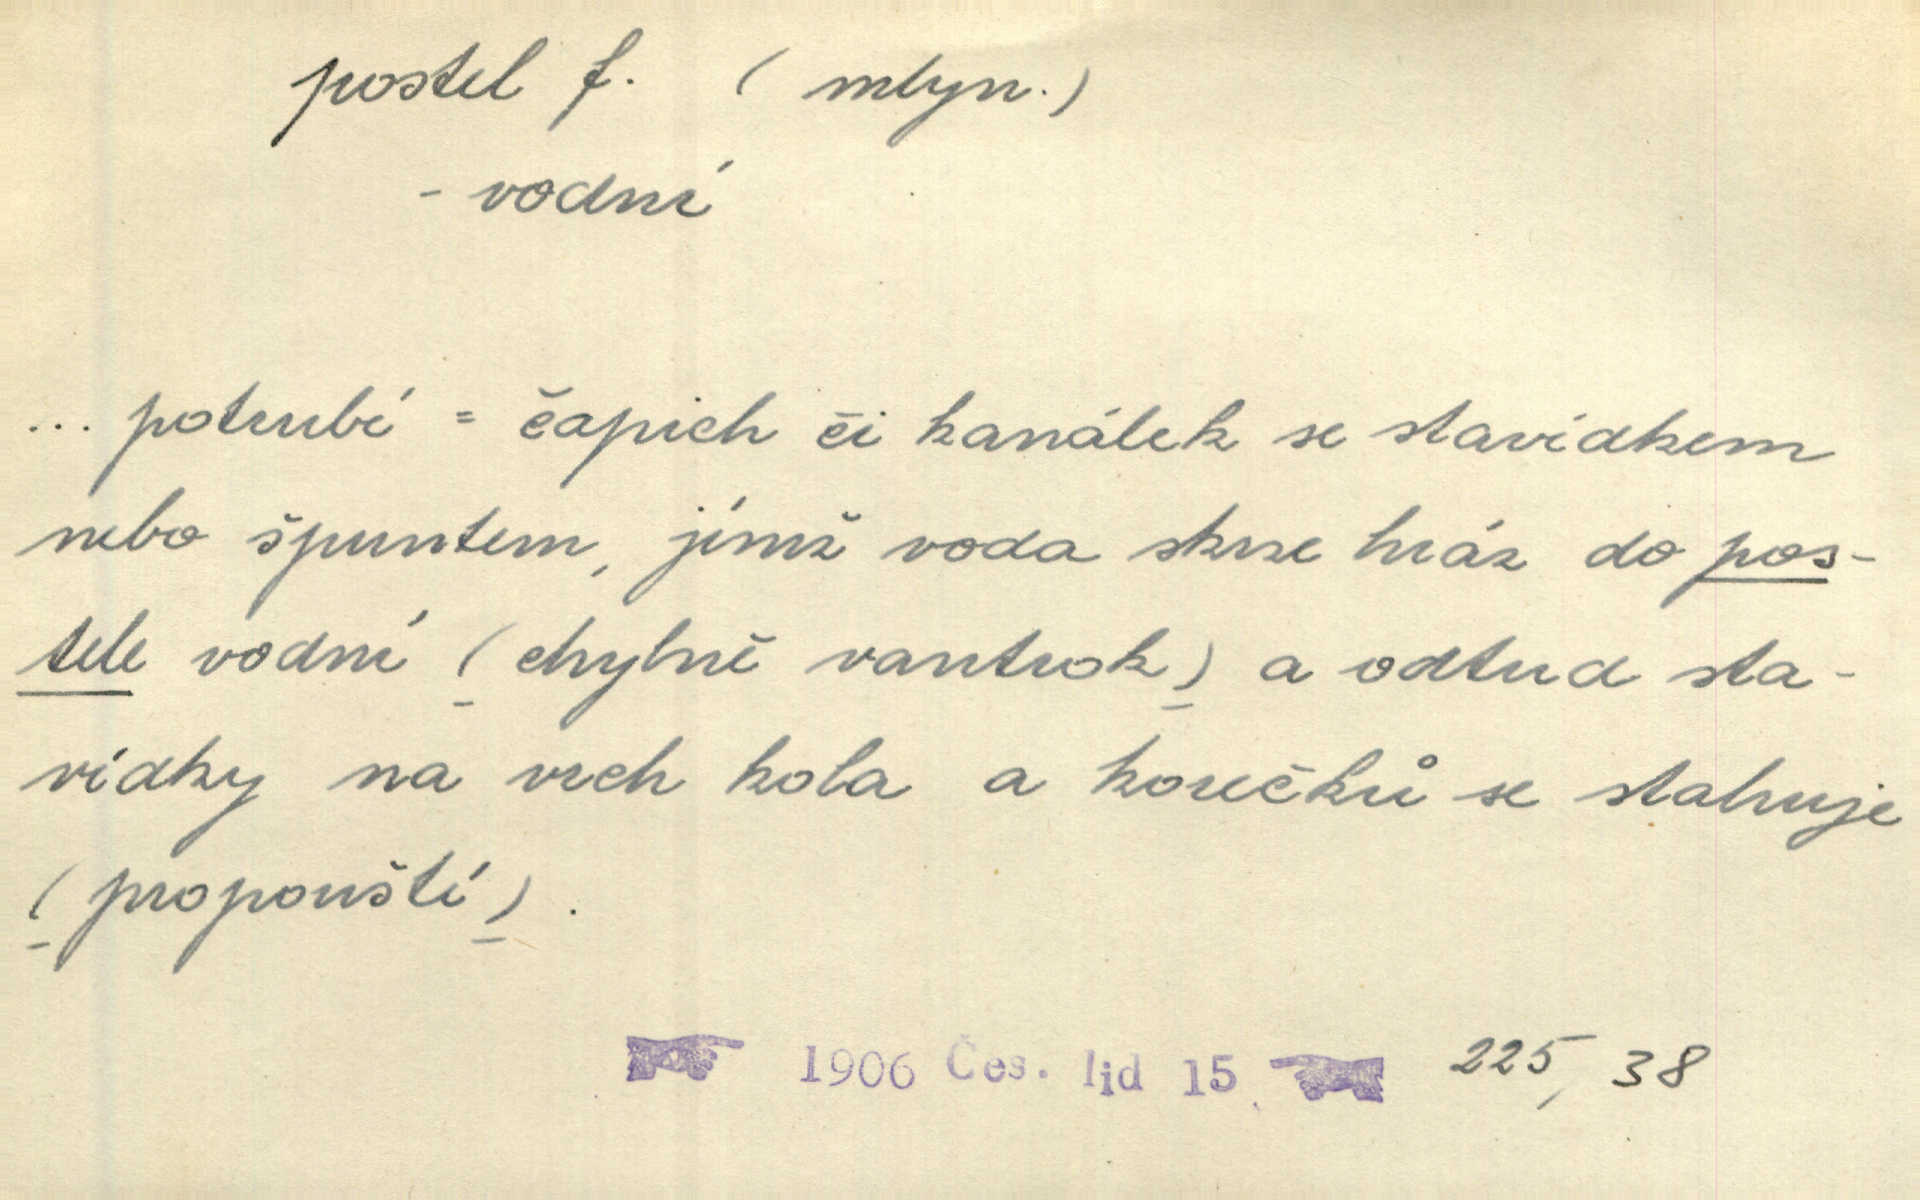 postel f. ( mlyn. )
- vodní
... potrubí = čapich či kanálek se stavidkem
nebo špuntem, jímž voda skrze hráz do pos-
tele vodní ( chylně vantrok ) a odtud sta-
vidky na vrch kola a korečků se stahuje
( propouští ) .
☛ 1906 Čes. lid 15 ☚ 225, 38